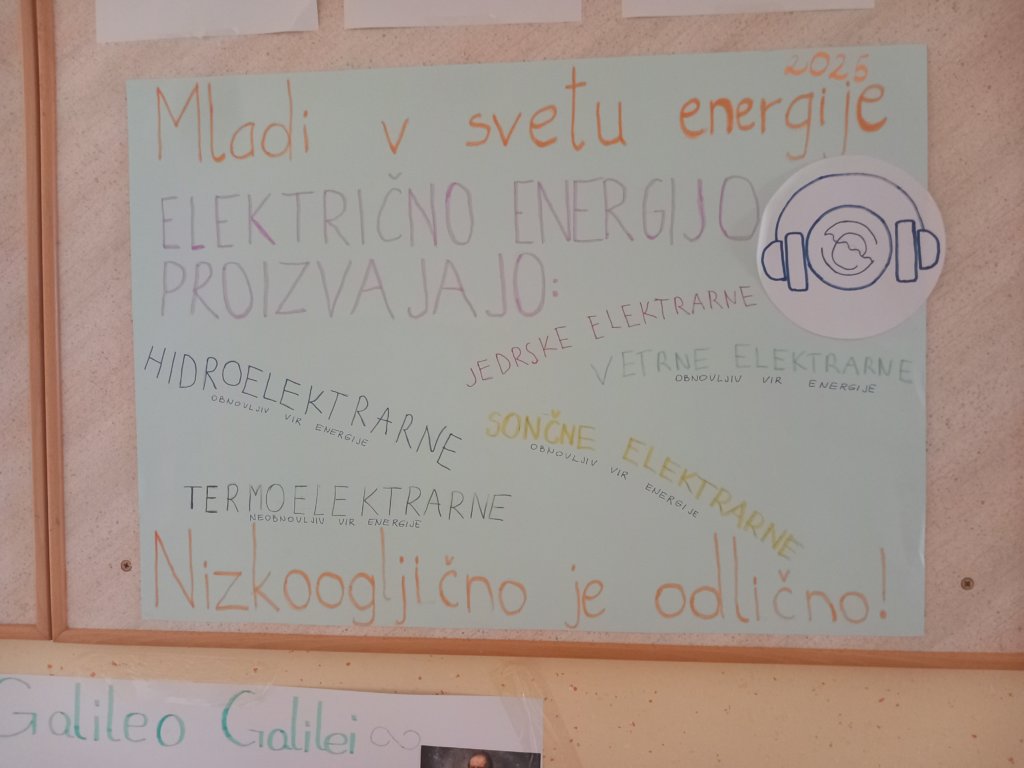 2025
Mladi v svetu energije
ELEKTRIČNO ENERGIJO
PROIZVAJAJO:
JEDRSKE ELEKTRARNE
VETRNE ELEKTRARNE
OBNOVLJIV VIR ENERGIJE
HIDROELEKTRARNE
OBNOVLJIV VIR ENERGIJE
SONČNE ELEKTRARNE
OBNOVLJIV VIR ENERGIJE
TERMOELEKTRARNE
NEOBNOVLJIV VIR ENERGIJE
Nizkoogljično je odlično!
Galileo Galilei